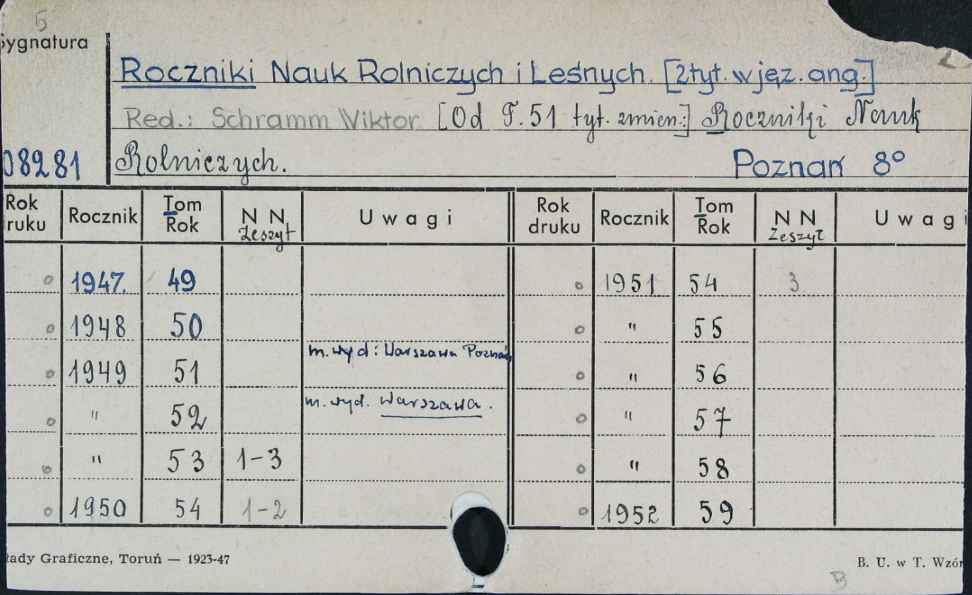 5
Sygnatura
Roczniki Nauk Rolniczych i Leśnych. [2 tyt. w jęz. ang.]
Red.: Schramm Wiktor. [Od T. 51 tyt. zmien:] Roczniki Nauk
08281 Rolniczych. Poznań 8°
Rok druku Rocznik Tom Rok N N Zeszyt Uwagi Rok druku Rocznik Tom Rok N N Zeszyt Uwagi
1947. 49 1951 54 3
1948 50 " 55
1949 51 m. wyd: Warszawa Poznań " 56
" 52 m. wyd. Warszawa. " 57
" 53 1-3 " 58
1950 54 1-2 1952 59
łady Graficzne, Toruń — 1923-47 B. U. w T. Wzór
B